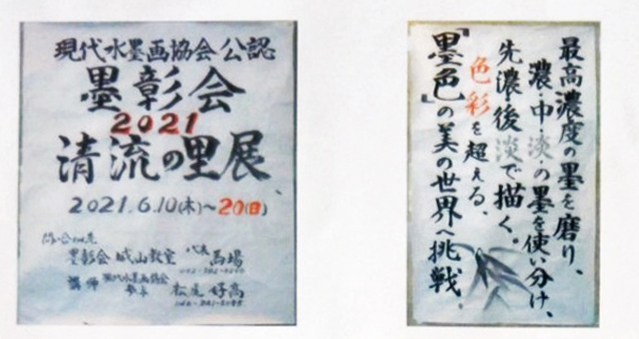 現代水墨画協会公認
墨彰会
2021
清流の里展
2021.6.10(木)～20(日)
問い合わせ先
墨彰会 城山教室 代表 馬場
講師 現代水墨画協会 松尾 好高
最高濃度の墨を磨り、
濃・中・淡の墨を使い分け、
先濃・後淡で描く。
色彩を超える、
「墨色」の美の世界へ挑戦。